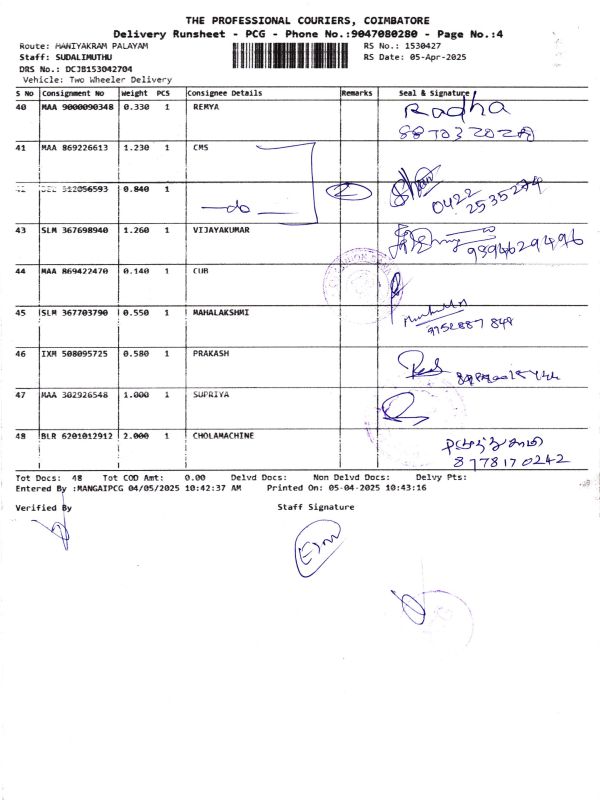 THE PROFESSIONAL COURIERS, COIMBATORE
Delivery Runsheet - PCG - Phone No.:9047080280 - Page No.:4
Route: MANIYAKRAM PALAYAM RS No.: 1530427
Staff: SUDALIMUTHU RS Date: 05-Apr-2025
DRS No.: DCJB153042704
Vehicle: Two Wheeler Delivery
S No Consignment No Weight PCS Consignee Details Remarks Seal & Signature
40 MAA 9000090348 0.330 1 REMYA Radha
41 MAA 869226613 1.230 1 CMS
42 DEL 512056593 0.840 1 -do- 2 0422
2535274
43 SLM 367698940 1.260 1 VIJAYAKUMAR 9894629496
44 MAA 869422470 0.140 1 CUB
45 SLM 367703790 0.550 1 MAHALAKSHMI
46 IXM 508095725 0.580 1 PRAKASH
47 MAA 302926548 1.000 1 SUPRIYA
48 BLR 6201012912 2.000 1 CHOLAMACHINE
8778170242
Tot Docs: 48 Tot COD Amt: 0.00 Delvd Docs: Non Delvd Docs: Delvy Pts:
Entered By :MANGAIPCG 04/05/2025 10:42:37 AM Printed On: 05-04-2025 10:43:16
Verified By Staff Signature